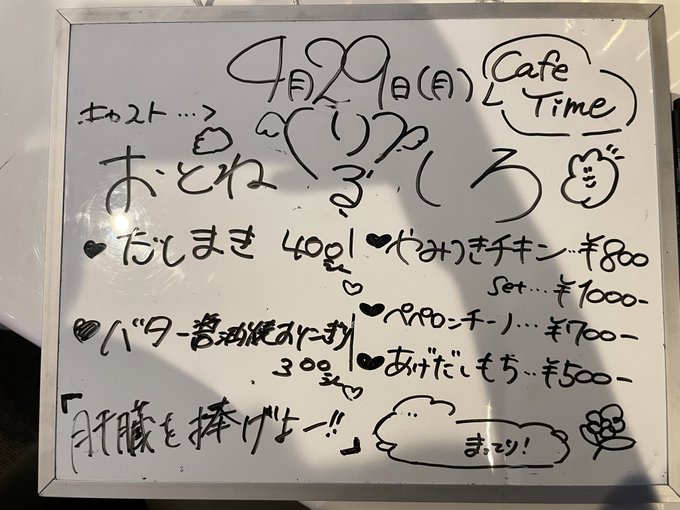 4月29日(月)
Cafe Time
キャスト…>
おとね
りる
しろ
♥だしまき 400
♥やみつきチキン…¥800
set…¥1000-
♥バター醤油焼おにぎり
300
♥ペペロンチーノ…¥700-
♥あげだしもち…¥500-
「肝臓を捧げよー!!」
まってり!